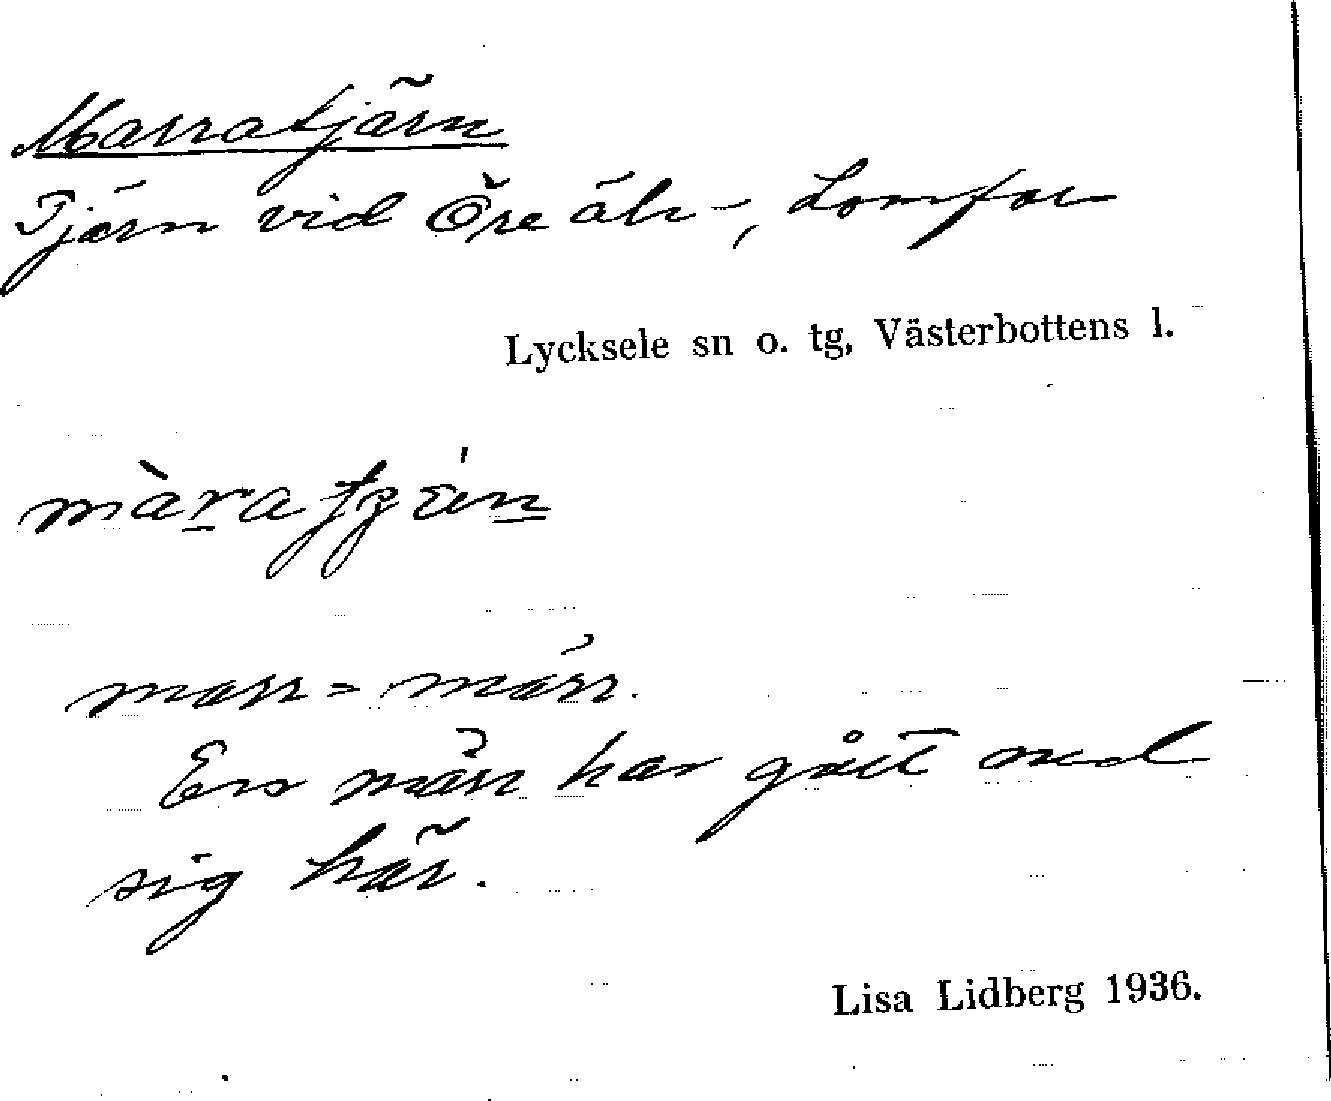 Marratjärn
Tjärn vid Öre älv, Lomfors
Lycksele sn o. tg, Västerbottens l.
marr = märr.
En märr har gått ned
sig här.
Lisa Lidberg 1936.